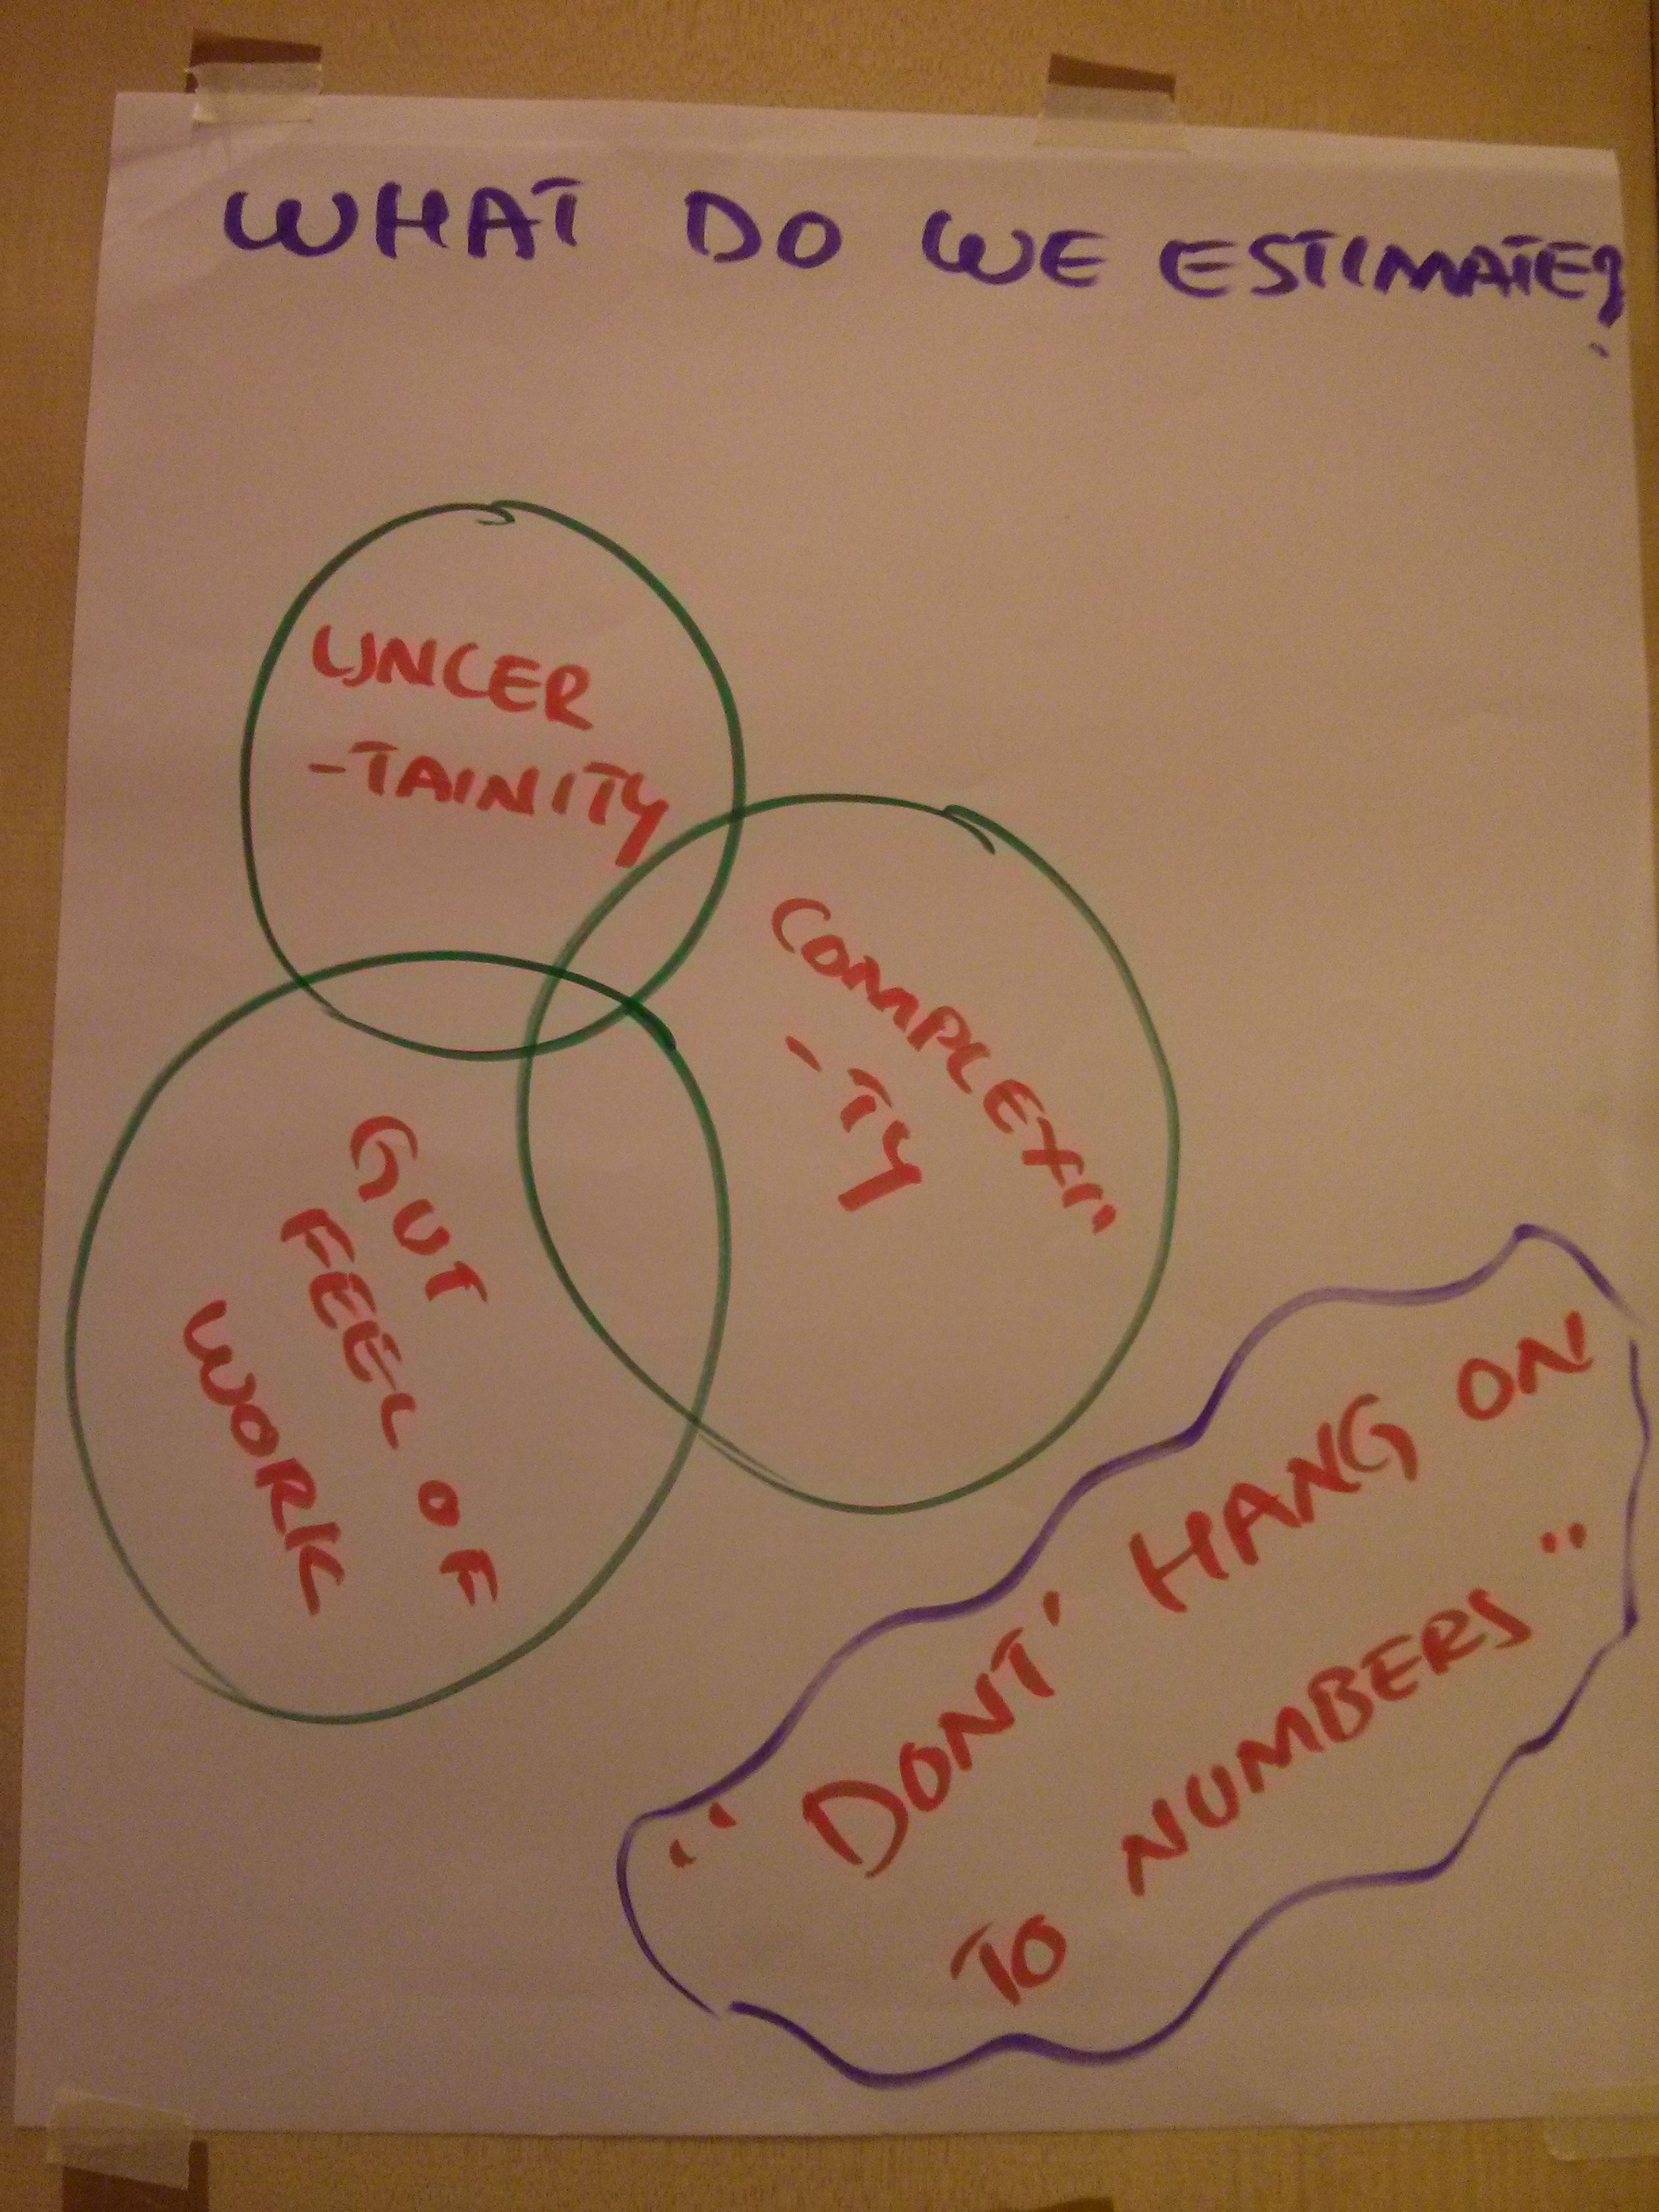 WHAT DO WE ESTIMATE?
UNCER
-TAINITY
COMPLEXI
-TY
GUT
FEEL OF
WORK
"DONT' HANG ON
TO NUMBERS"